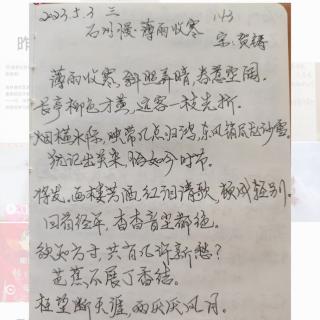 2023.5.3 三
143
石州慢·薄雨收寒
宋:贺铸
薄雨收寒,斜照弄晴,春意空阔.
长亭柳色才黄,远客一枝先折.
烟横水际,映带几点归鸿,东风销尽龙沙雪.
犹记出关来,恰如今时节.
将发.画楼芳酒,红泪清歌,顿成轻别.
回首经年,杳杳音尘都绝.
欲知方寸,共有几许新愁?
芭蕉不展丁香结.
枉望断天涯,两厌厌风月.